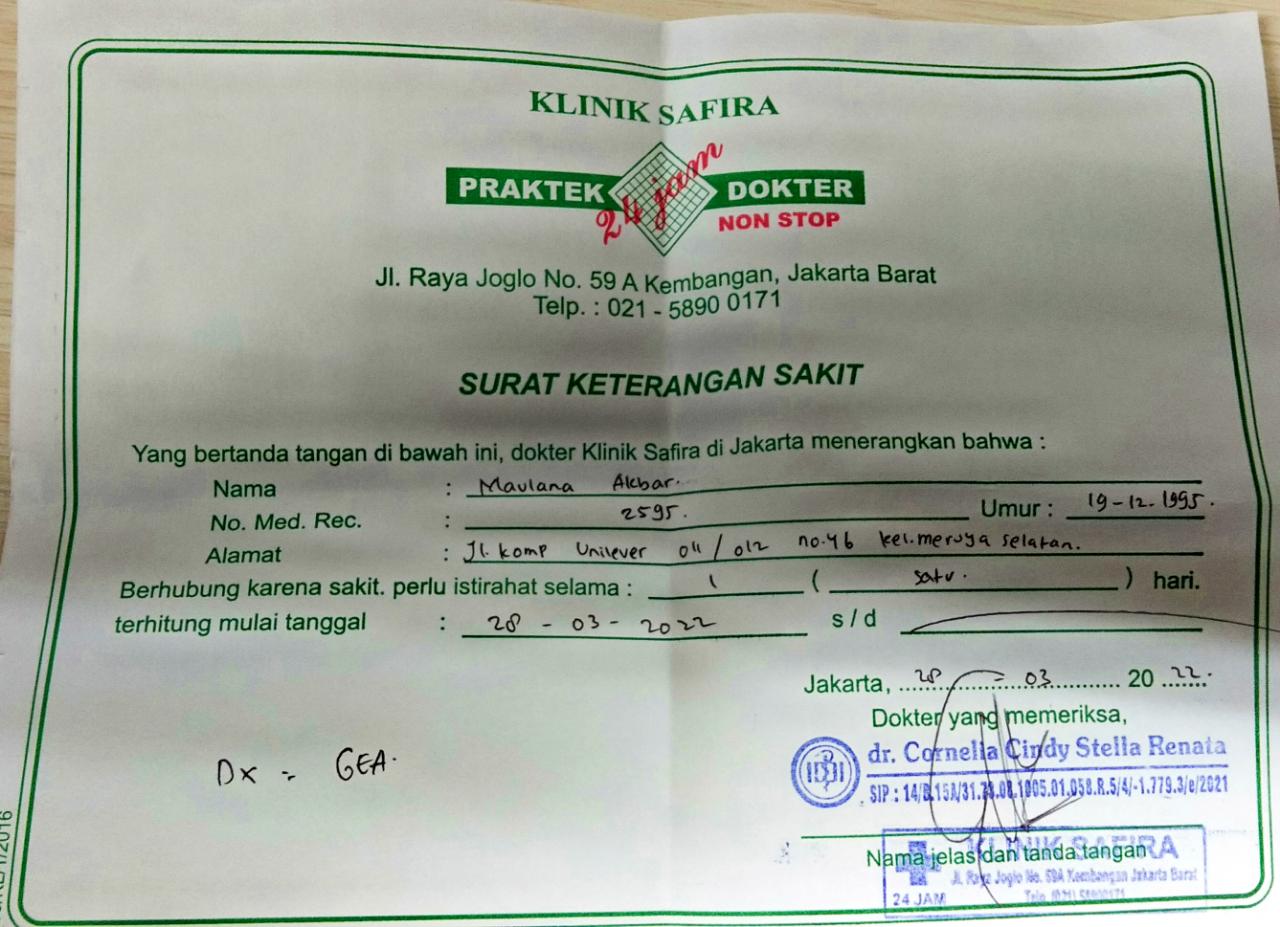 KLINIK SAFIRA
PRAKTEK 24 jam DOKTER
NON STOP
Jl. Raya Joglo No. 59 A Kembangan, Jakarta Barat
Telp. : 021 - 5890 0171
SURAT KETERANGAN SAKIT
Yang bertanda tangan di bawah ini, dokter Klinik Safira di Jakarta menerangkan bahwa :
Nama : Maulana Akbar.
No. Med. Rec. : 2595. Umur : 19-12-1995.
Alamat : Jl. Komp Unilever 011 / 012 no.46 kel.meruya selatan.
Berhubung karena sakit. perlu istirahat selama : 1 ( satu. ) hari.
terhitung mulai tanggal : 28 - 03 - 2022 s / d
Jakarta, 28 - 03 20 22.
Dokter yang memeriksa,
dr. Cornelia Cindy Stella Renata
Dx = GEA.
Nama jelas dan tanda tangan
KLINIK SAFIRA
Jl. Raya Joglo No. 59A Kembangan Jakarta Barat
24 JAM Telp. (021) 58900171